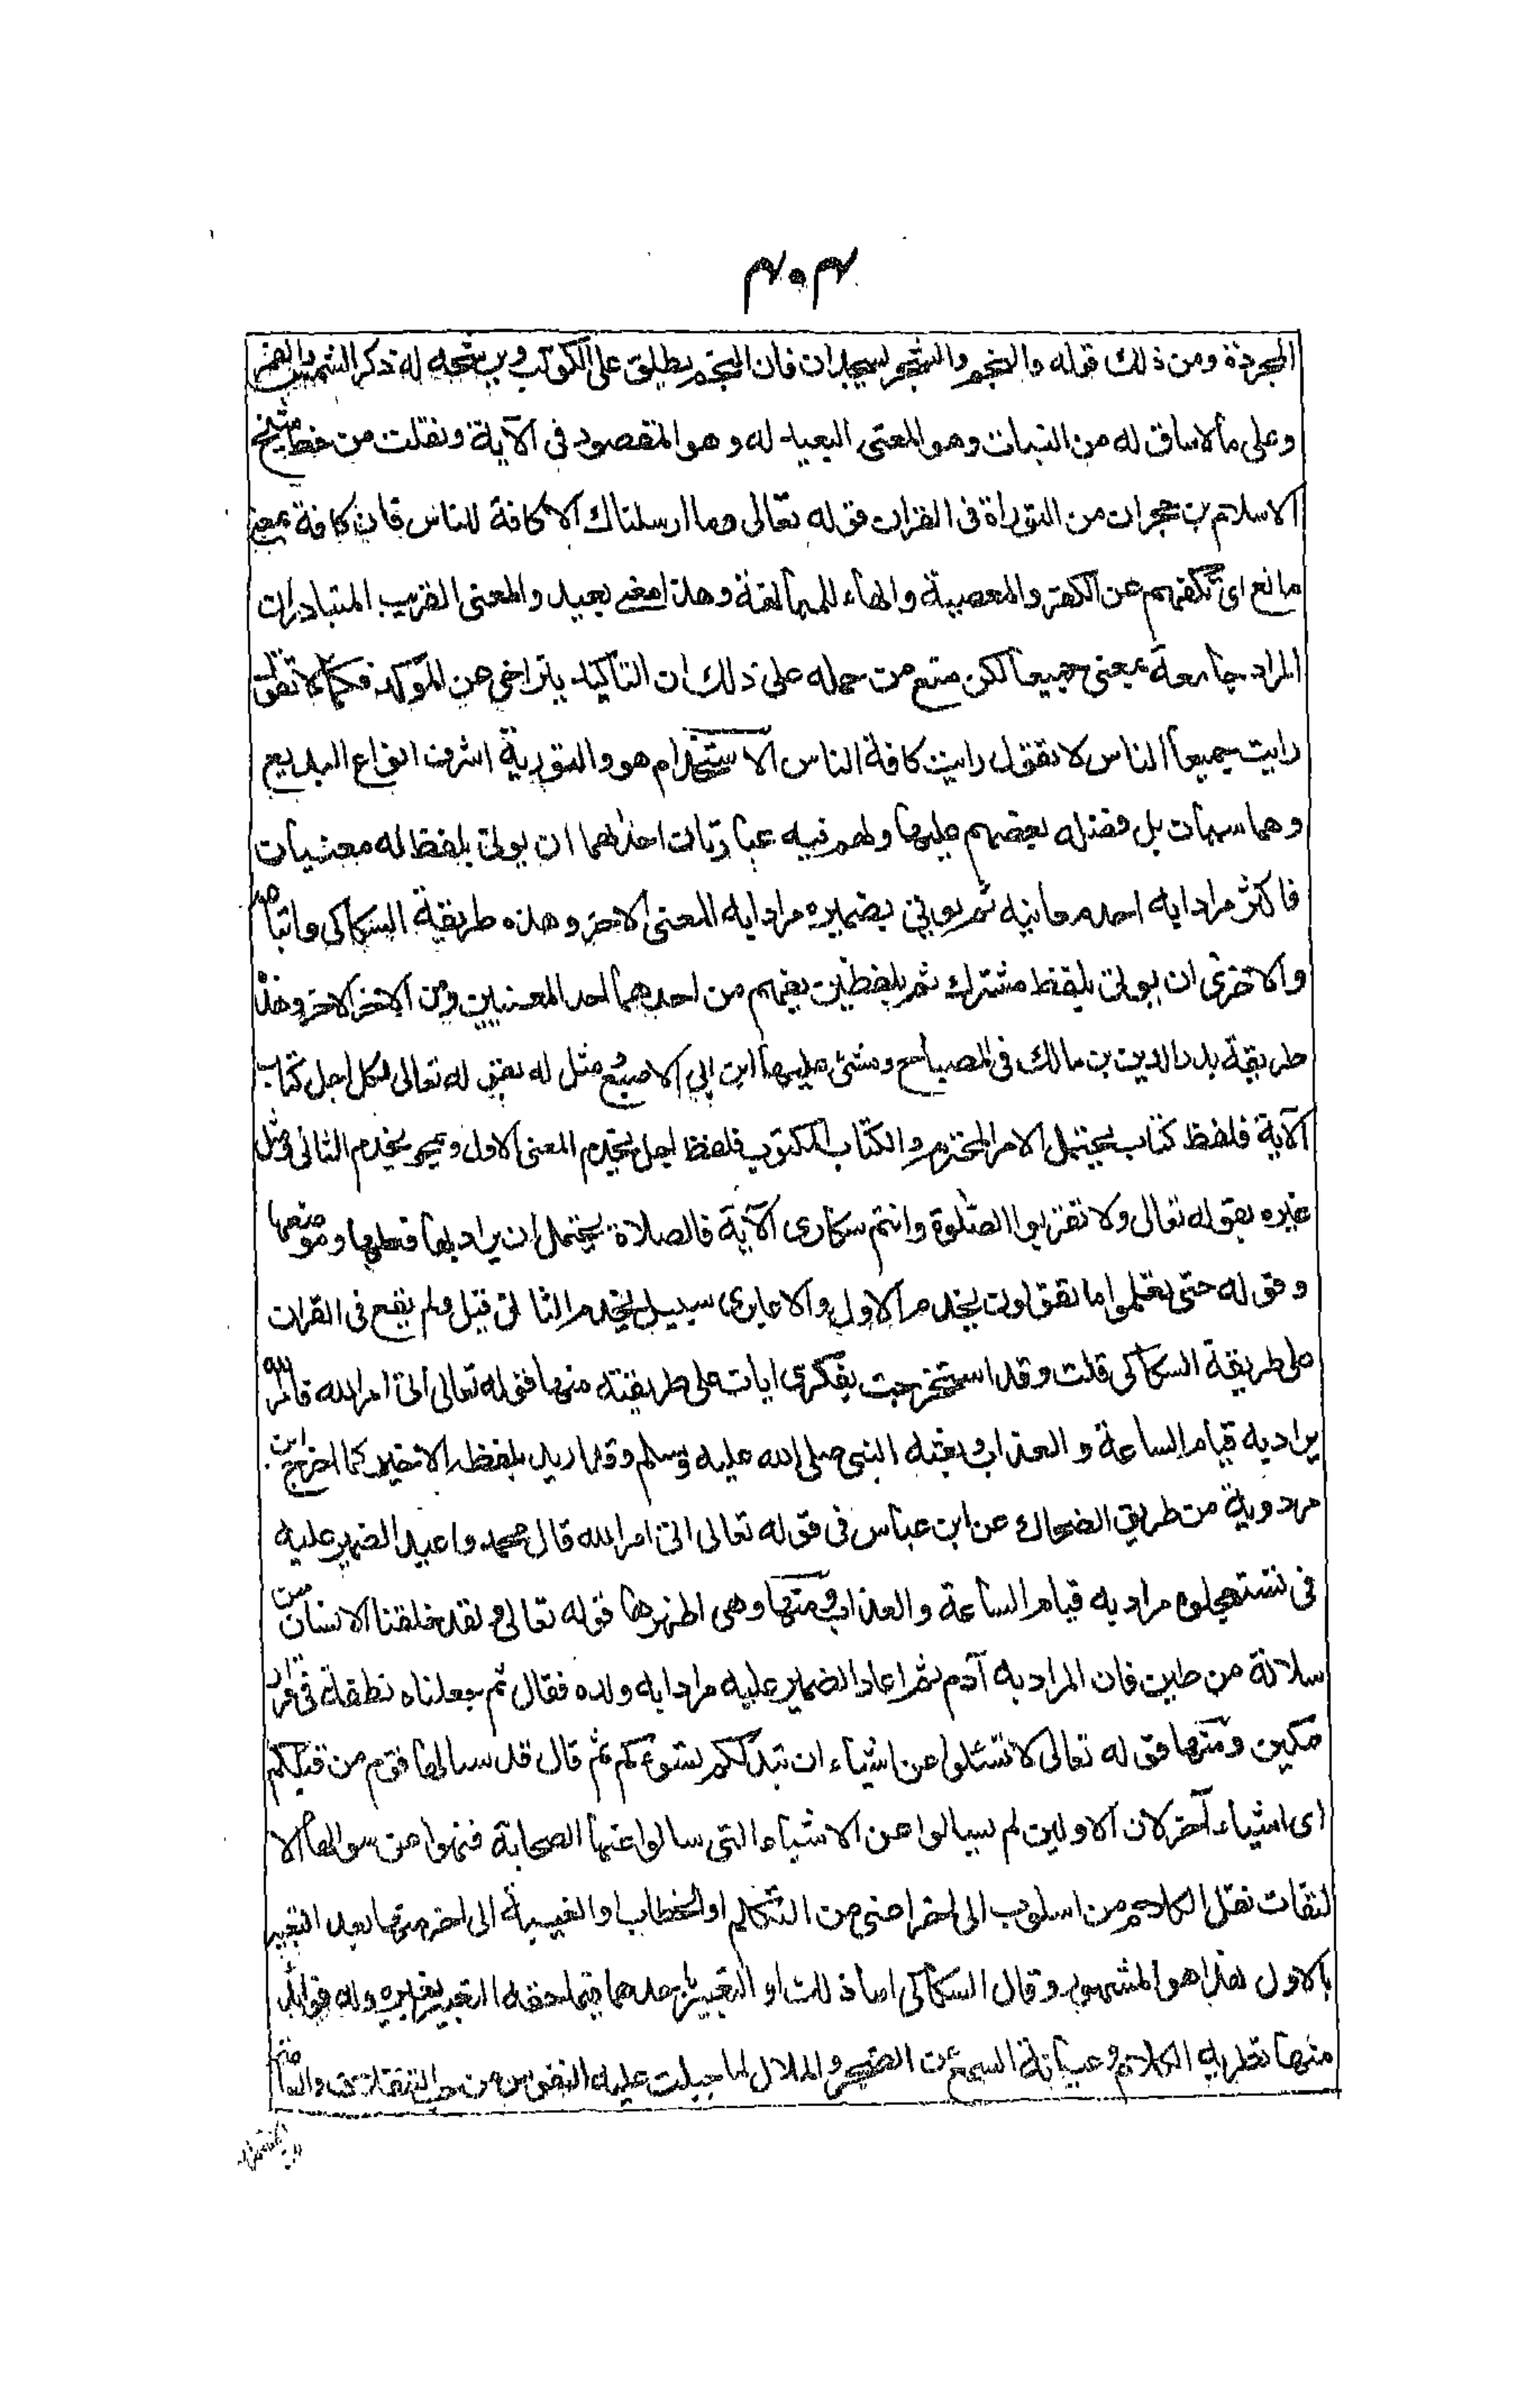 ٣٠٣
المجردة ومن ذلك قوله والنجم والشجر يسجدان فان النجم يطلق على الكوكب ويرشحه له ذكر الشمس والقمر
وعلى ما لا ساق له من النبات وهو المعنى البعيد له وهو المقصود فى الآية ونقلت من خط شيخ
الاسلام بن حجر ان من التوراة فى القران قوله تعالى وما ارسلناك الا كافة للناس فان كافة بمعنى
مانع اى تكفهم عن الكفر والمعصية والهاء للمبالغة وهذا معنى بعيد والمعنى القريب المتبادر ان
المراد جامعة بمعنى جميعا لكن منع من حمله على ذلك ان التاكيد يتراخى عن المؤكد فكما لا تقول
رايت جميعا الناس لا تقول رايت كافة الناس الاستخدام هو والتورية اشرف انواع البديع
وهما سيان بل فضله بعضهم عليها ولهم فيه عبارتان احداهما ان يوتى بلفظ له معنيان
فاكثر مرادا به احد معانيه ثم يوتى بضميره مرادا به المعنى الاخر وهذه طريقة السكاكى واتباعه
والاخرى ان يوتى بلفظ مشترك ثم بلفظين يفهم من احدهما احد المعنيين ومن الاخر الاخر وهذه
طريقة بدر الدين بن مالك فى المصباح ومشى عليها ابن ابي الاصبع مثل له بقوله تعالى لكل اجل كتاب
الآية فلفظ كتاب يحتمل الامر المحتوم والكتاب المكتوب فلفظ اجل يخدم المعنى الاول ويمحو يخدم الثانى ومثل
غيره بقوله تعالى ولا تقربوا الصلوة وانتم سكارى الآية فالصلاة يحتمل ان يراد بها فعلها وموضعها
وقوله حتى تعلموا ما تقولون يخدم الاول والا عابرى سبيل يخدم الثانى قيل ولم يقع فى القران
على طريقة السكاكى قلت وقد استخرجت بفكرى ايات على طريقته منها قوله تعالى اتى امر الله فامر الله
يراد به قيام الساعة والعذاب وبعثه النبى صلى الله عليه وسلم وقد اريد بلفظه الاخير كما اخرج ابن
مردوية من طريق الضحاك عن ابن عباس فى قوله تعالى اتى امر الله قال محمد واعيد الضمير عليه
فى تستعجلوه مراد به قيام الساعة والعذاب ومنها وهى اظهرها قوله تعالى ولقد خلقنا الانسان من
سلالة من طين فان المراد به آدم ثم اعاد الضمير عليه مرادا به ولده فقال ثم جعلناه نطفة فى قرار
مكين ومنها قوله تعالى لا تسئلوا عن اشياء ان تبد لكم تسوءكم ثم قال قد سالها قوم من قبلكم
اى اشياء آخر لان الاولين لم يسالوا عن الاشياء التى سالوا عنها الصحابة فنهوا عن سوالها الا
لتفات نقل الكلام من اسلوب الى اخر اعنى من التكلم او الخطاب او الغيبة الى اخر منها بعد التعبير
بالاول هذا هو المشهور وقال السكاكى اما ذلك او التعبير باحدهما فيما حقه التعبير بغيره وله فوائد
منها تطرية الكلام وصيانة السمع عن الضجر والملال لما جبلت عليه النفوس من حب التنقلات